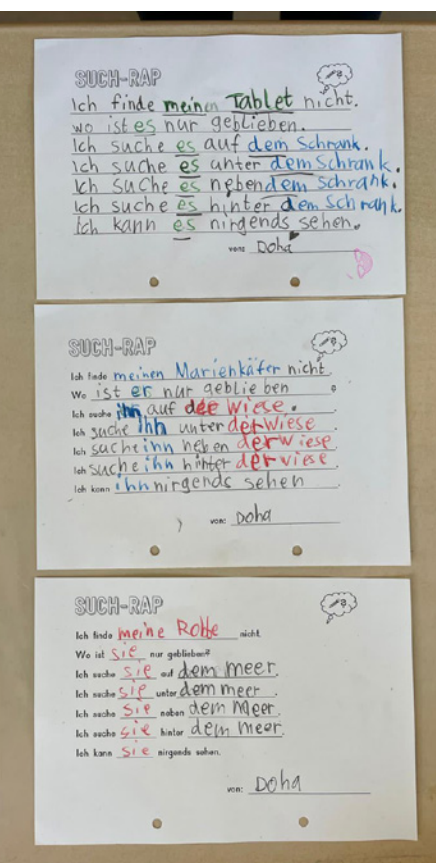 SUCH-RAP
Ich finde meinen Tablet nicht.
wo ist es nur geblieben.
Ich suche es auf dem Schrank.
Ich suche es unter dem Schrank.
Ich suche es neben dem Schrank.
Ich suche es hinter dem Schrank.
Ich kann es nirgends sehen.
von: Doha
SUCH-RAP
Ich finde meinen Marienkäfer nicht.
Wo ist er nur geblieben ?
Ich suche ihn auf der Wiese.
Ich suche ihn unter der Wiese.
Ich suche inn neben der Wiese.
Ich suche ihn hinter der viese.
Ich kann ihn nirgends sehen.
von: Doha
SUCH-RAP
Ich finde meine Robbe nicht.
Wo ist sie nur geblieben?
Ich suche sie auf dem meer.
Ich suche sie unter dem meer.
Ich suche sie neben dem Meer.
Ich suche sie hinter dem Meer.
Ich kann sie nirgends sehen.
von: Doha